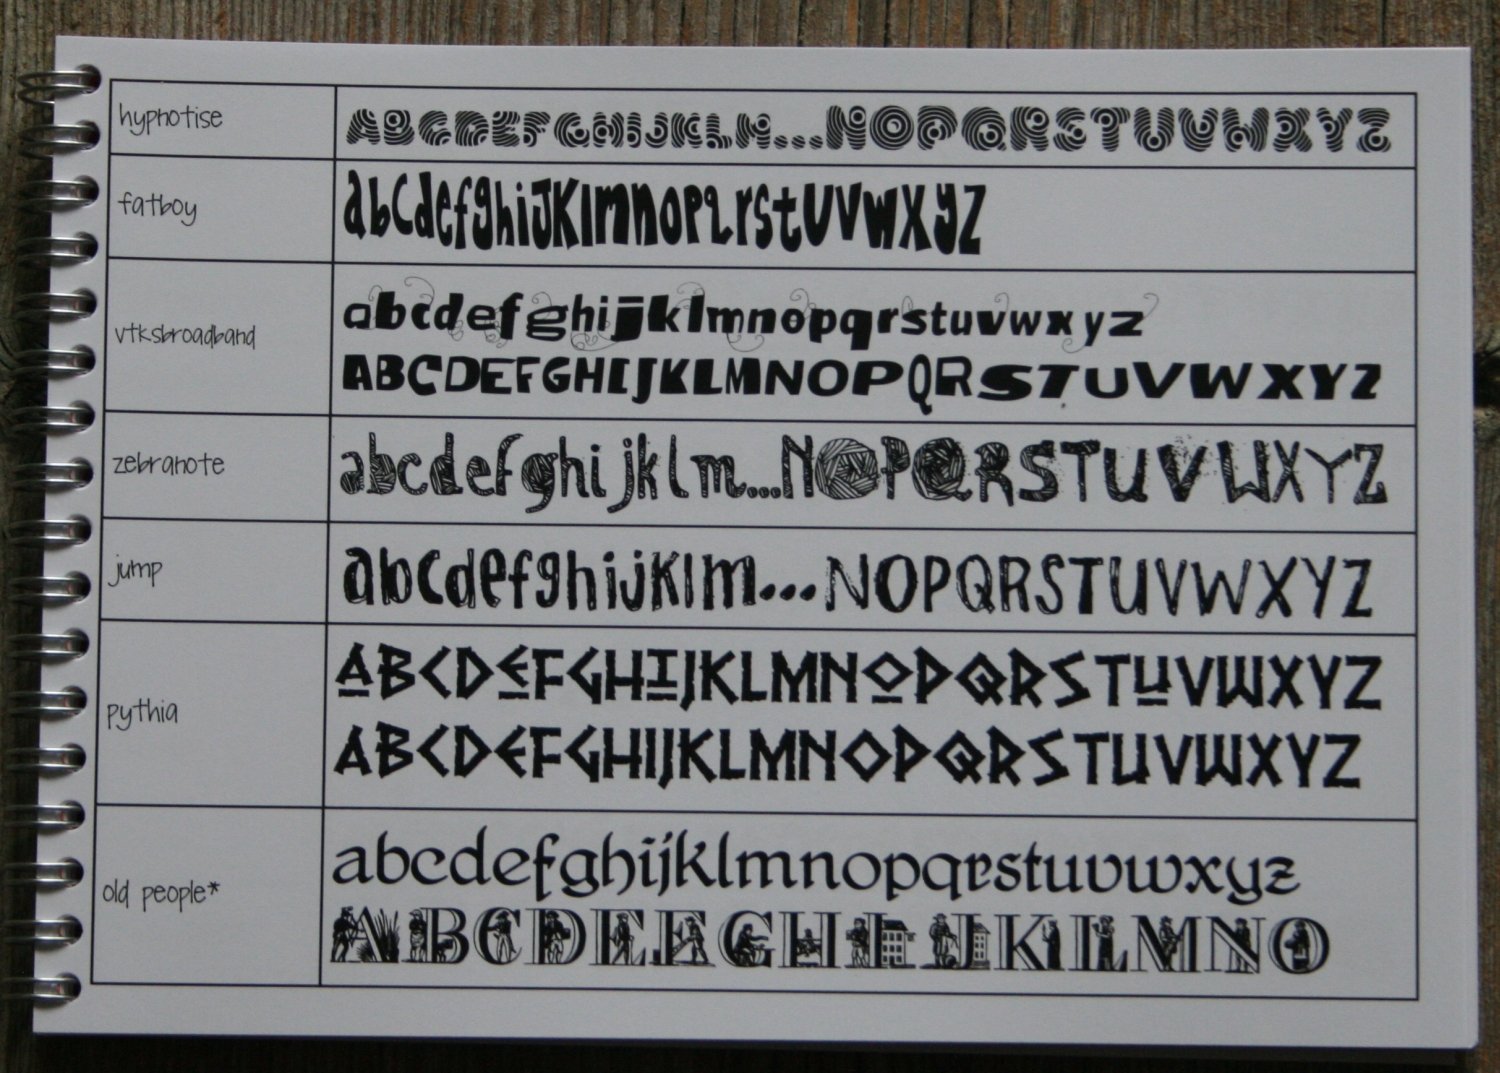 hypnotise
ABCDEFGHIJKLM...NOPQRSTUVWXYZ
fatboy
abCdefghiJKlmnopqrstUVwXyZ
vtksbroadband
abcdefghijklmnopqrstuvwxyz
ABCDEFGHIJKLMNOPQRSTUVWXYZ
zebranote
abcdefghijklm...NOPQRSTUVWXYZ
jump
abcdefghijklm...NOPQRSTUVWXYZ
pythia
ABCDEFGHIJKLMNOPQRSTUVWXYZ
ABCDEFGHIJKLMNOPQRSTUVWXYZ
old people*
abcdefghijklmnopqrstuvwxyz
ABCDEFGHIJKLMNO